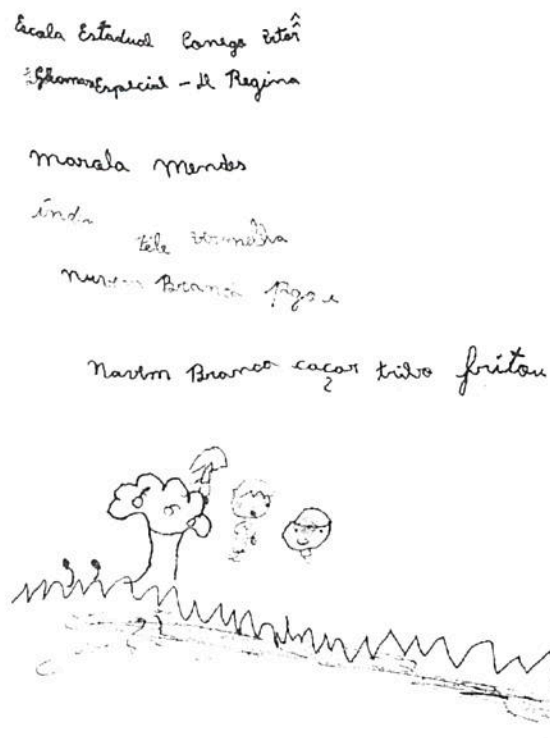 Escala Estadual Conego Vitor
Especial - II Regina
Marala Mendes
índ
téle vermelha
nuvem Branca
Navim Branco caçar tribo fritou